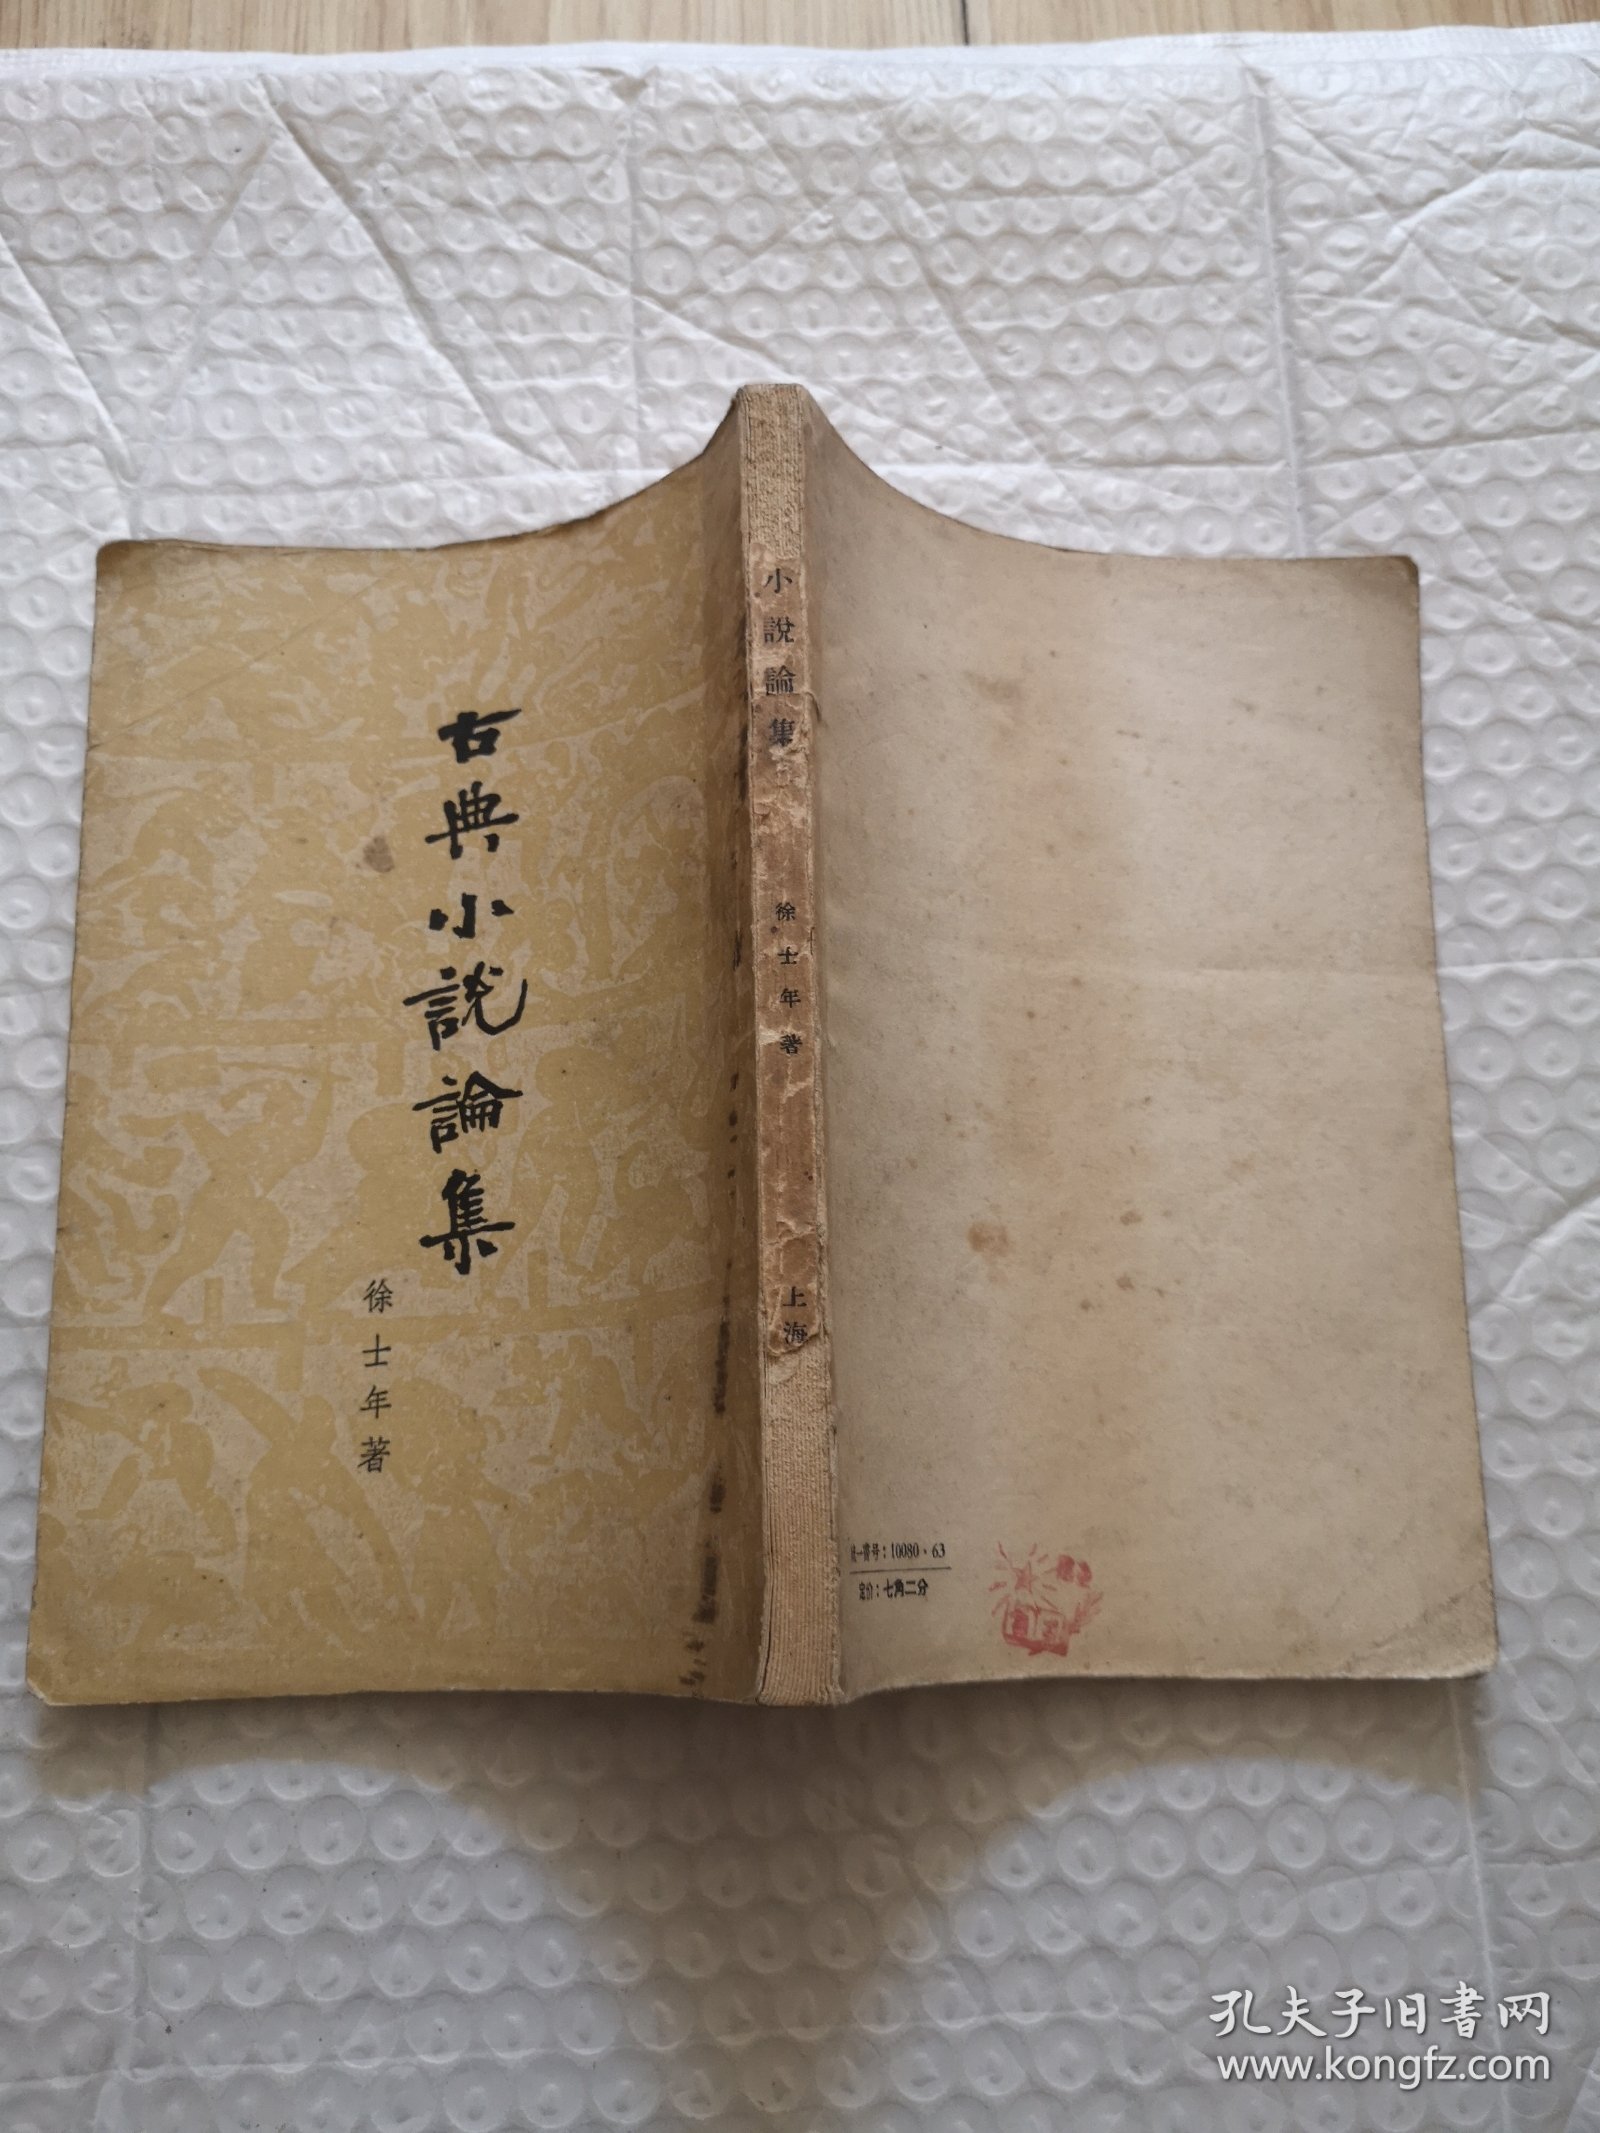 古典小說論集
徐士年著
小說論集
徐士年著
上海
統一書号：10080·63
定价：七角二分
孔夫子旧书网
www.kongfz.com